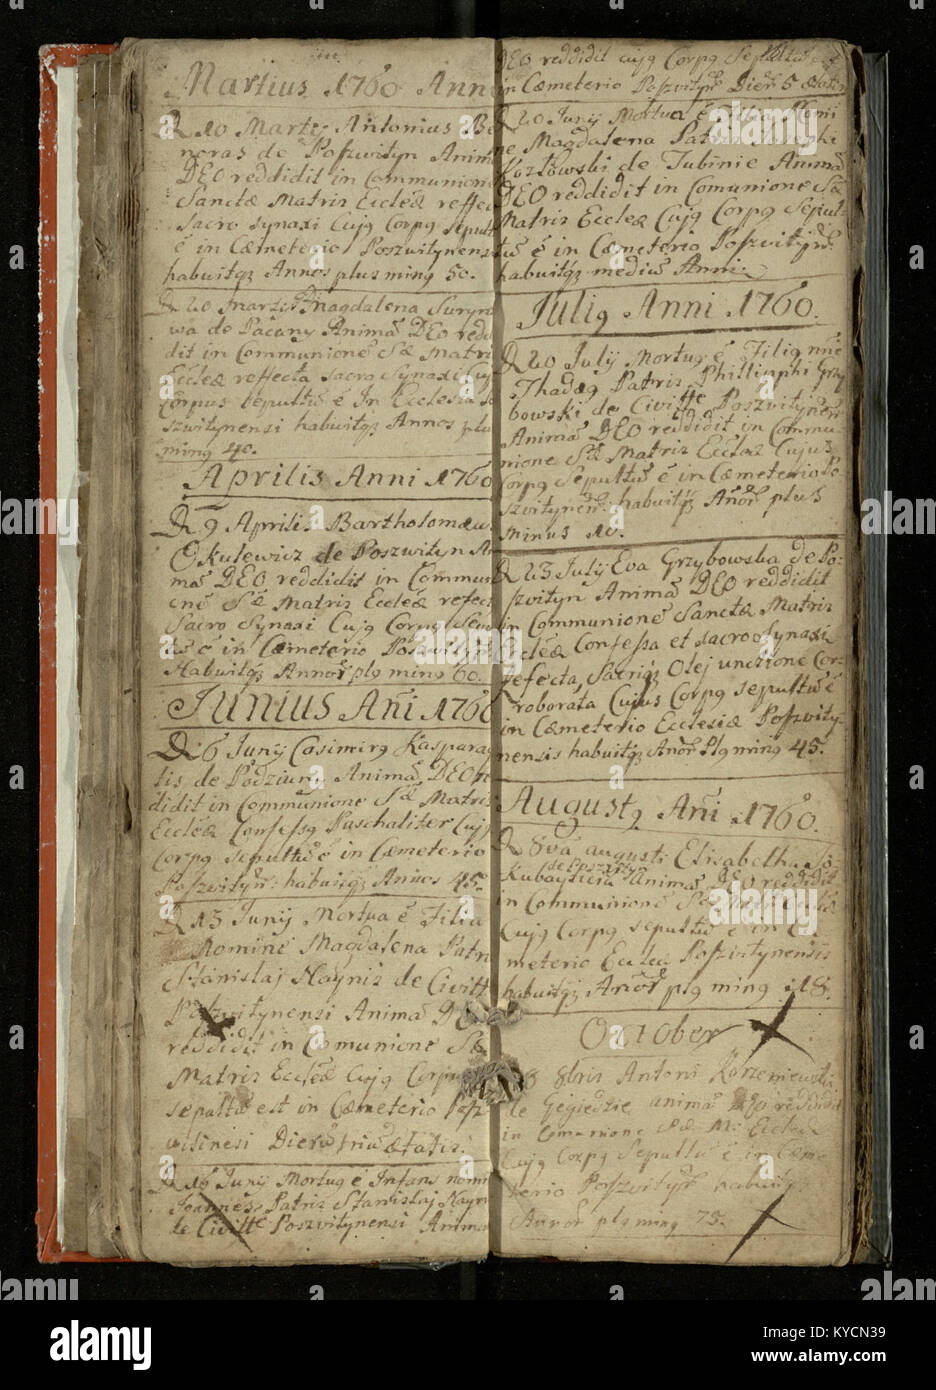 Martius 1760 Ann
D 10 Martij Antonius Be
noras de Poszwityn Anim
DEO reddidit in Communione
Sanctæ Matris Eccleæ reffec
Sacro Synaxi Cujq Corpq sepult
ẽ in Cæmeterio Poszwitynensi
habuitqz Annos plus minq 50.
D 20 Martij Magdalena
wa de Pacany Animã DEO redd
dit in Communionẽ Sæ Matris
Eccleæ reffecta sacro Synaxi Cujq
Corpus sepultũ ẽ In Ecclesia Po
szwitynensi habuitqz Annos plu
minq 40.
Aprilis Anni 1760
D 9 Aprilis Bartholomæus
Okulewicz de Poszwityn Ani
mã DEO reddidit in Commun
onẽ Sæ Matris Eccleæ refect
Sacro Synaxi Cujq Corpq Sepul
tũ ẽ in Cæmeterio Poszwityn
Habuitqz Annos plq minq 60.
Junius Añi 1760
D 6 Junij Casimirq Kaspara
tis de Podziuny Animã DEO re
didit in Communione Sæ Matris
Eccleæ Confessq Paschaliter Cujq
Corpq sepultũ ẽ in Cæmeterio
Poszwityn: habuitqz Annos 45.
D 13 Junij Mortua ẽ Filia
Nomine Magdalena Patri
Stanislaj Naynis de Civitt
Poszwitynensi Animã DEO
reddidit in Comunione Sæ
Matris Eccleæ Cujq Corpus
sepultũ est in Cæmeterio Posz
witinesi Dierũ triũ ætatis.
D 16 Junij Mortuq ẽ Infans nomi
Joannes Patris Stanislaj Nayn
de Civitte Poszwitynensi Animã
DEO reddidit cujq Corpq Sepultũ
in Cæmeterio Poszwityn Dierũ 5 ætatis
D 20 Junij Mortua ẽ Filia Nomi
ne Magdalena Patris
Kozłowski de Tubinie Animã
DEO reddidit in Comunione Sæ
Matris Eccleæ Cujq Corpq Sepul
tũ ẽ in Cæmeterio Poszwityn
habuitqz mediũ Anni.
Julijq Anni 1760.
D 20 Julij Mortuq ẽ Filiq nñe
Thadæq Patris Phillipphi Grzy
bowski de Civitte Poszwitynen
Animã DEO reddidit in Commu-
nione Sæ Matris Eccleæ Cujus
Corpq Sepultũ ẽ in Cæmeterio Po
szwitynen: habuitqz Anõr plus
minus 10.
D 23 Julij Eva Grzybowska de Po-
szwityn Animã DEO reddidit
in Communione Sanctæ Matris
Eccleæ Confessa et sacro Synaxi
refecta, Sacriqz Olej unctione Cor-
roborata Cujus Corpq sepultũ ẽ
in Cæmeterio Ecclesiæ Poszwity-
nensis habuitqz Anõr Plq minq 45.
Augustq Añi 1760.
D 8va augusti Elisabetha Jo
de Poszwityn
Kubaytiecia Animã DEO reddidit
in Communione Sæ Matris Eccleæ
Cujq Corpq sepultũ ẽ in Cæ
meterio Eccleæ Poszwitynensis
habuitqz Anõr plq minq 18.
October
8 8bris Antoni Korzeniewski
de Gegiedzie animã DEO reddidit
in comunione Sæ M: Eccleæ
Cujq Corpq Sepultũ ẽ in Cæme
terio Poszwityn habuitqz
Anõr plq minq 75.
alamy
Image ID: KYCN39
www.alamy.com